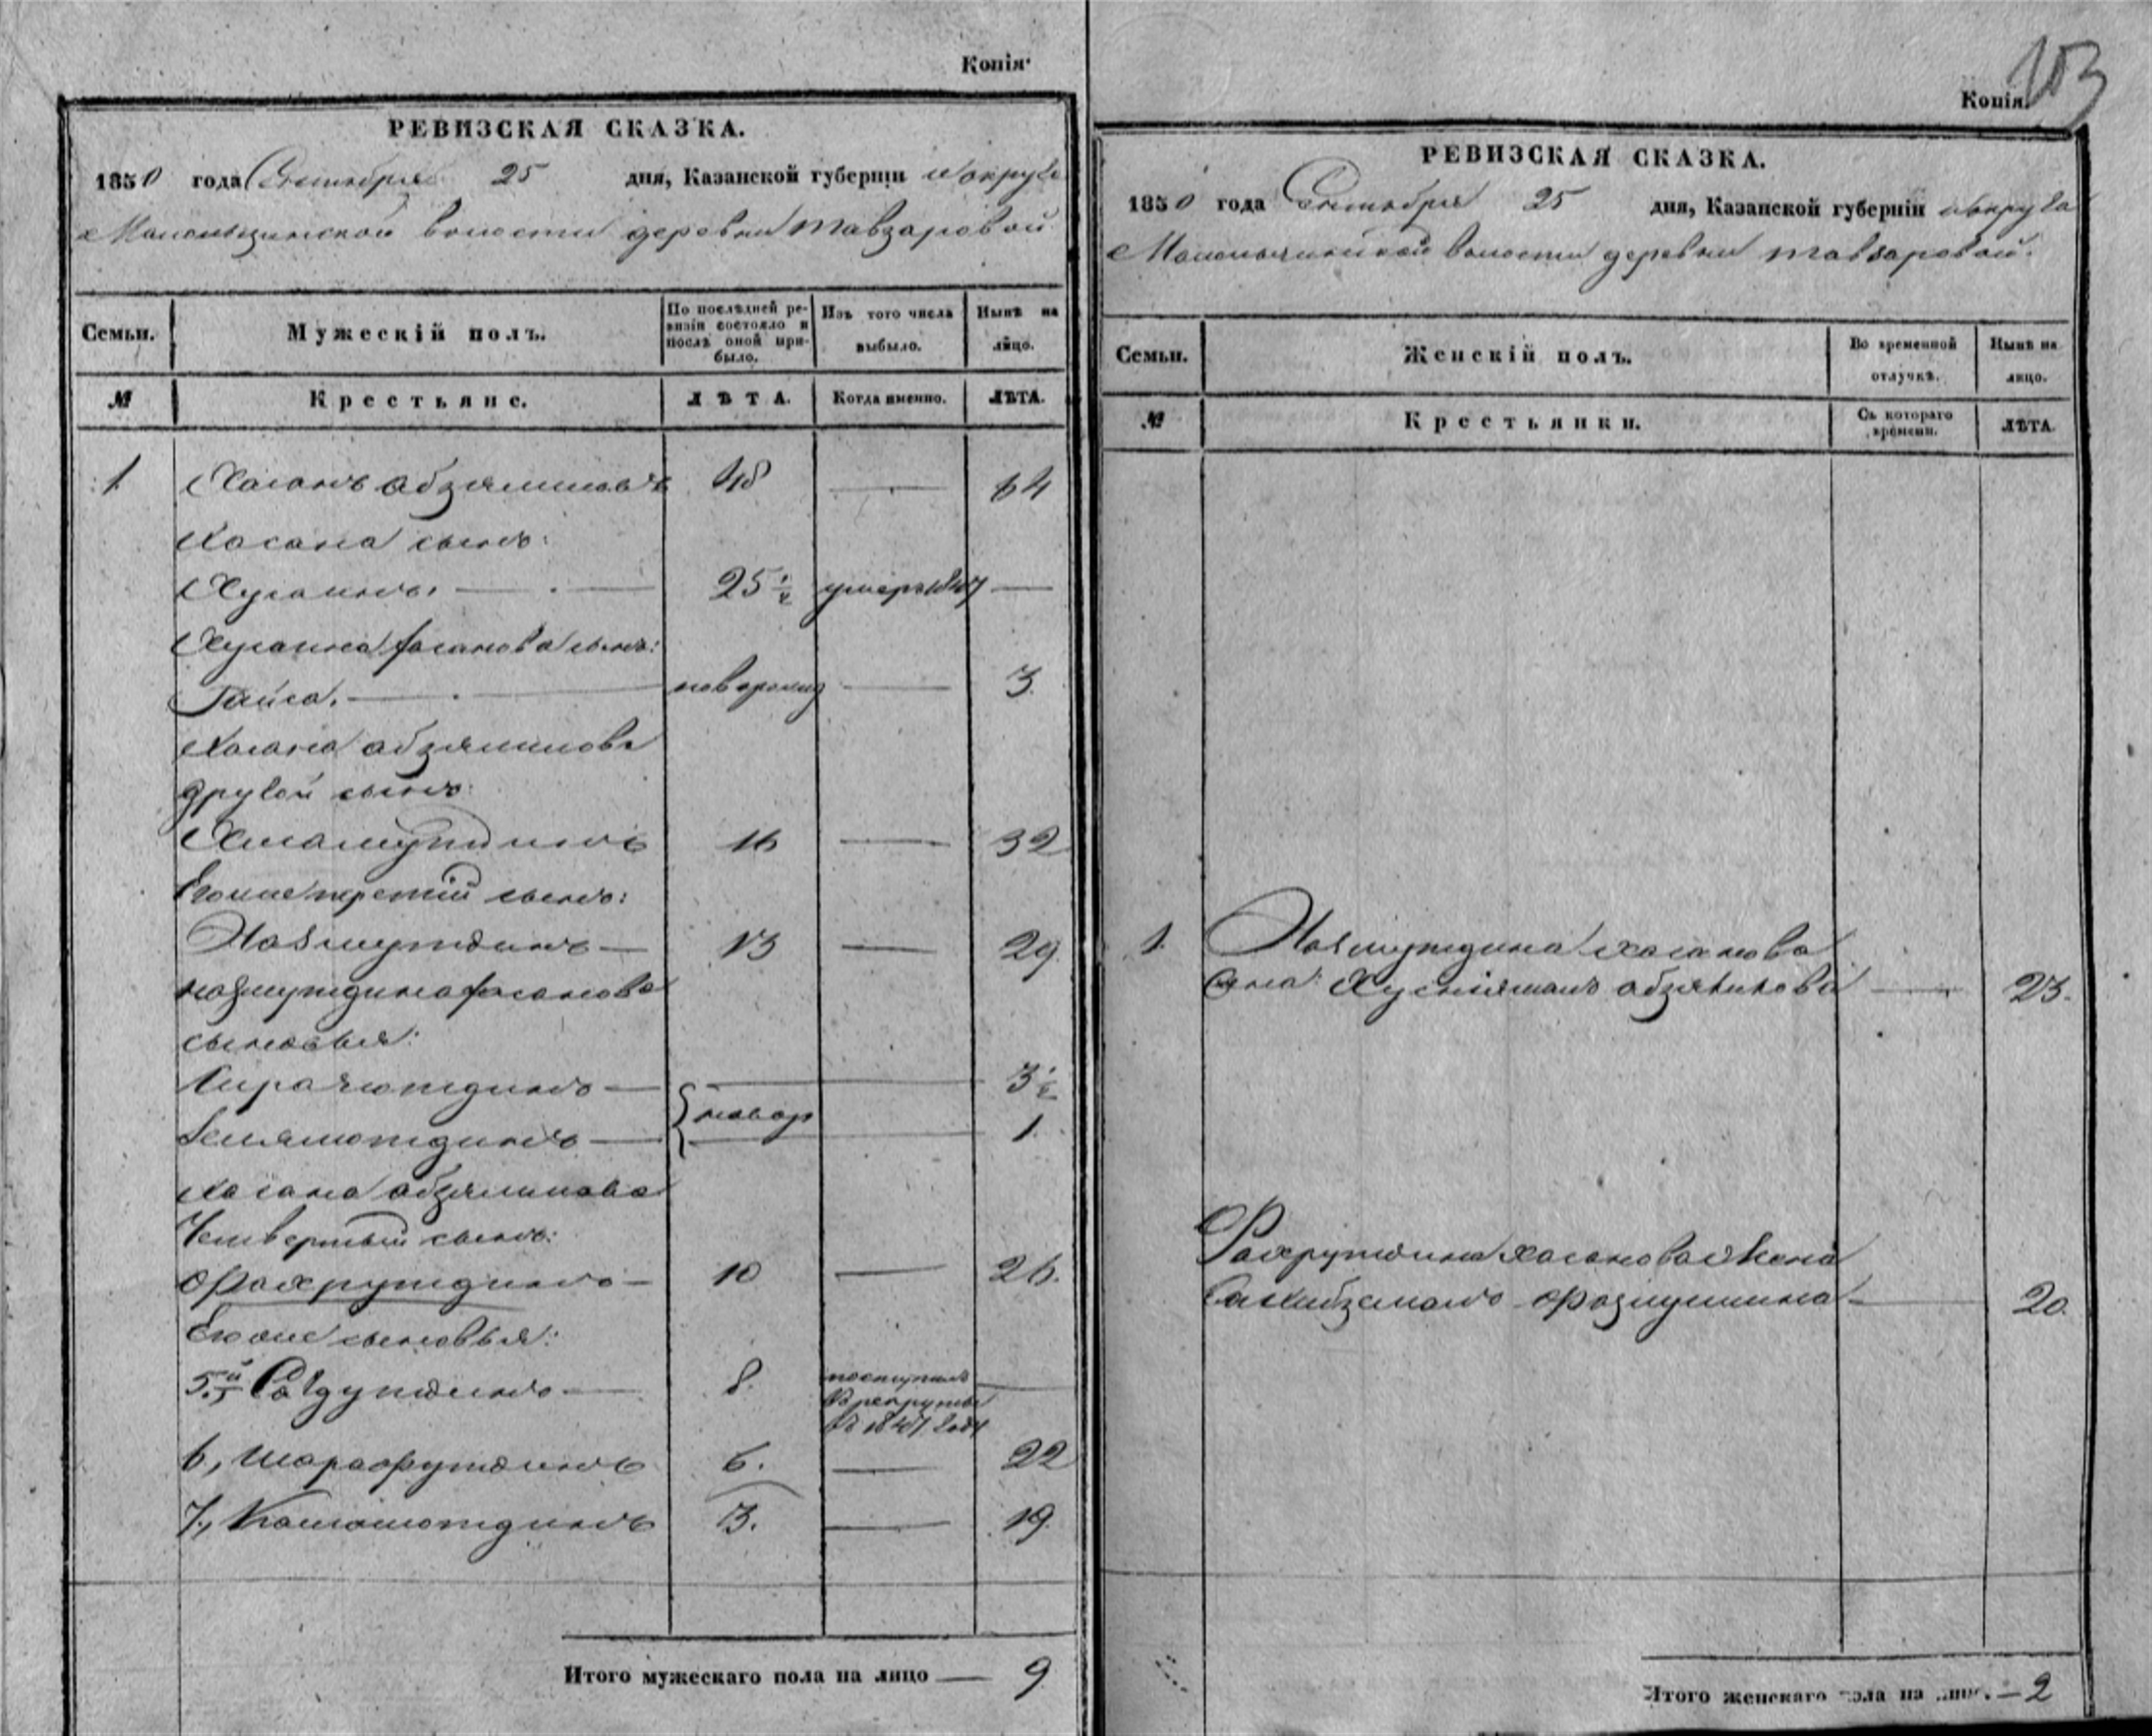 Копія
РЕВИЗСКАЯ СКАЗКА.
1850 года Сентября 25 дня, Казанской губерніи и округа
волости деревни Тавзаровой
Семьи. Мужескій полъ. По послѣдней ревизіи состояло и послѣ оной прибыло. Изъ того числа выбыло. Нынѣ на лицо.
№ Крестьяне. ЛѢТА. Когда именно. ЛѢТА.
1 Хасанъ Абзялиловъ 48 — 64
Хасана сынъ:
Хусаинъ. — 25½ умеръ 1847 —
Хусаина Хасанова сынъ:
Гайса. — новорожд — 3.
Хасана Абзялилова
другой сынъ:
16 — 32
Его же третій сынъ:
Назмутдинъ — 13 — 29
Назмутдина Хасанова
сыновья:
— 3½
новор
— 1.
Хасана Абзялилова
Четвертый сынъ:
Фахрутдинъ — 10 — 26.
Его же сыновья:
5.й Садутдинъ — 8. поступилъ
в рекруты
въ 1847 году
6, Шарафутдинъ 6. — 22
7., Камалютдинъ 3. — 19.
Итого мужескаго пола на лицо — 9
103
Копія.
РЕВИЗСКАЯ СКАЗКА.
1850 года Сентября 25 дня, Казанской губерніи и округа
волости деревни Тавзаровой.
Семьи. Женскій полъ. Во временной отлучкѣ. Нынѣ на лицо.
№ Крестьянки. Съ котораго времени. ЛѢТА.
1. Назмутдина Хасанова
жена Хуснизямалъ — 23.
Фахрутдина Хасанова жена
— 20.
Итого женскаго пола на лицо. — 2